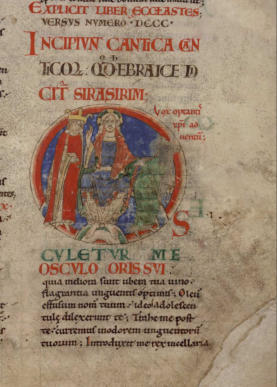 EXPLICIT LIBER ECCLESIASTES;
VERSUS NUMERO · DCCC ·
INCIPIUNT CANTICA CAN
TICOR. QD EBRAICE DI
CIT SIRASIRIM;
Vox optanti
xpi ad
uentu;
S
CULETUR ME
OSCULO ORIS SUI.
quia meliora sunt ubera tua uino.
flagrantia unguentis optimis; Oleu
effusum nom tuum. ideo adolescen
tulę dilexerunt te; Trahe me post
te. curremus in odorem unguentoru
tuorum; Introduxit me rex in cellaria